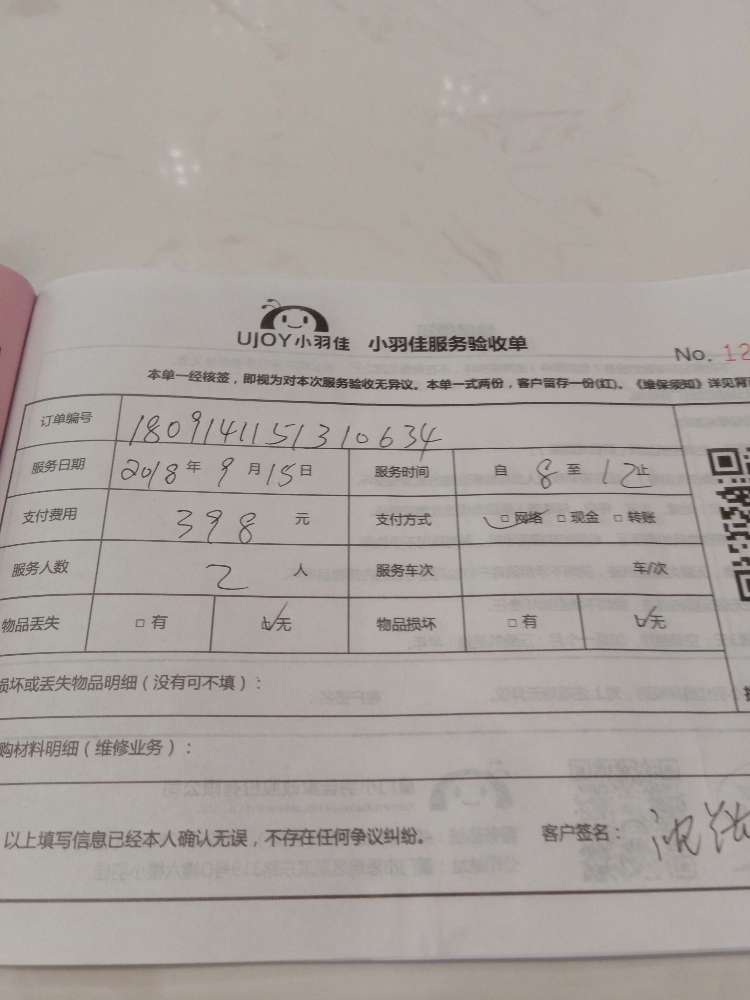 UJOY小羽佳 小羽佳服务验收单
No. 12
本单一经核签，即视为对本次服务验收无异议。本单一式两份，客户留存一份(红)。《维保须知》详见背
订单编号 180914115131​0634
服务日期 2018年9月15日 服务时间 自8至12止
支付费用 398 元 支付方式 ☑网络 □现金 □转账
服务人数 2 人 服务车次 车/次
物品丢失 □有 ☑无 物品损坏 □有 ☑无
损坏或丢失物品明细（没有可不填）：
购材料明细（维修业务）：
以上填写信息已经本人确认无误，不存在任何争议纠纷。 客户签名：